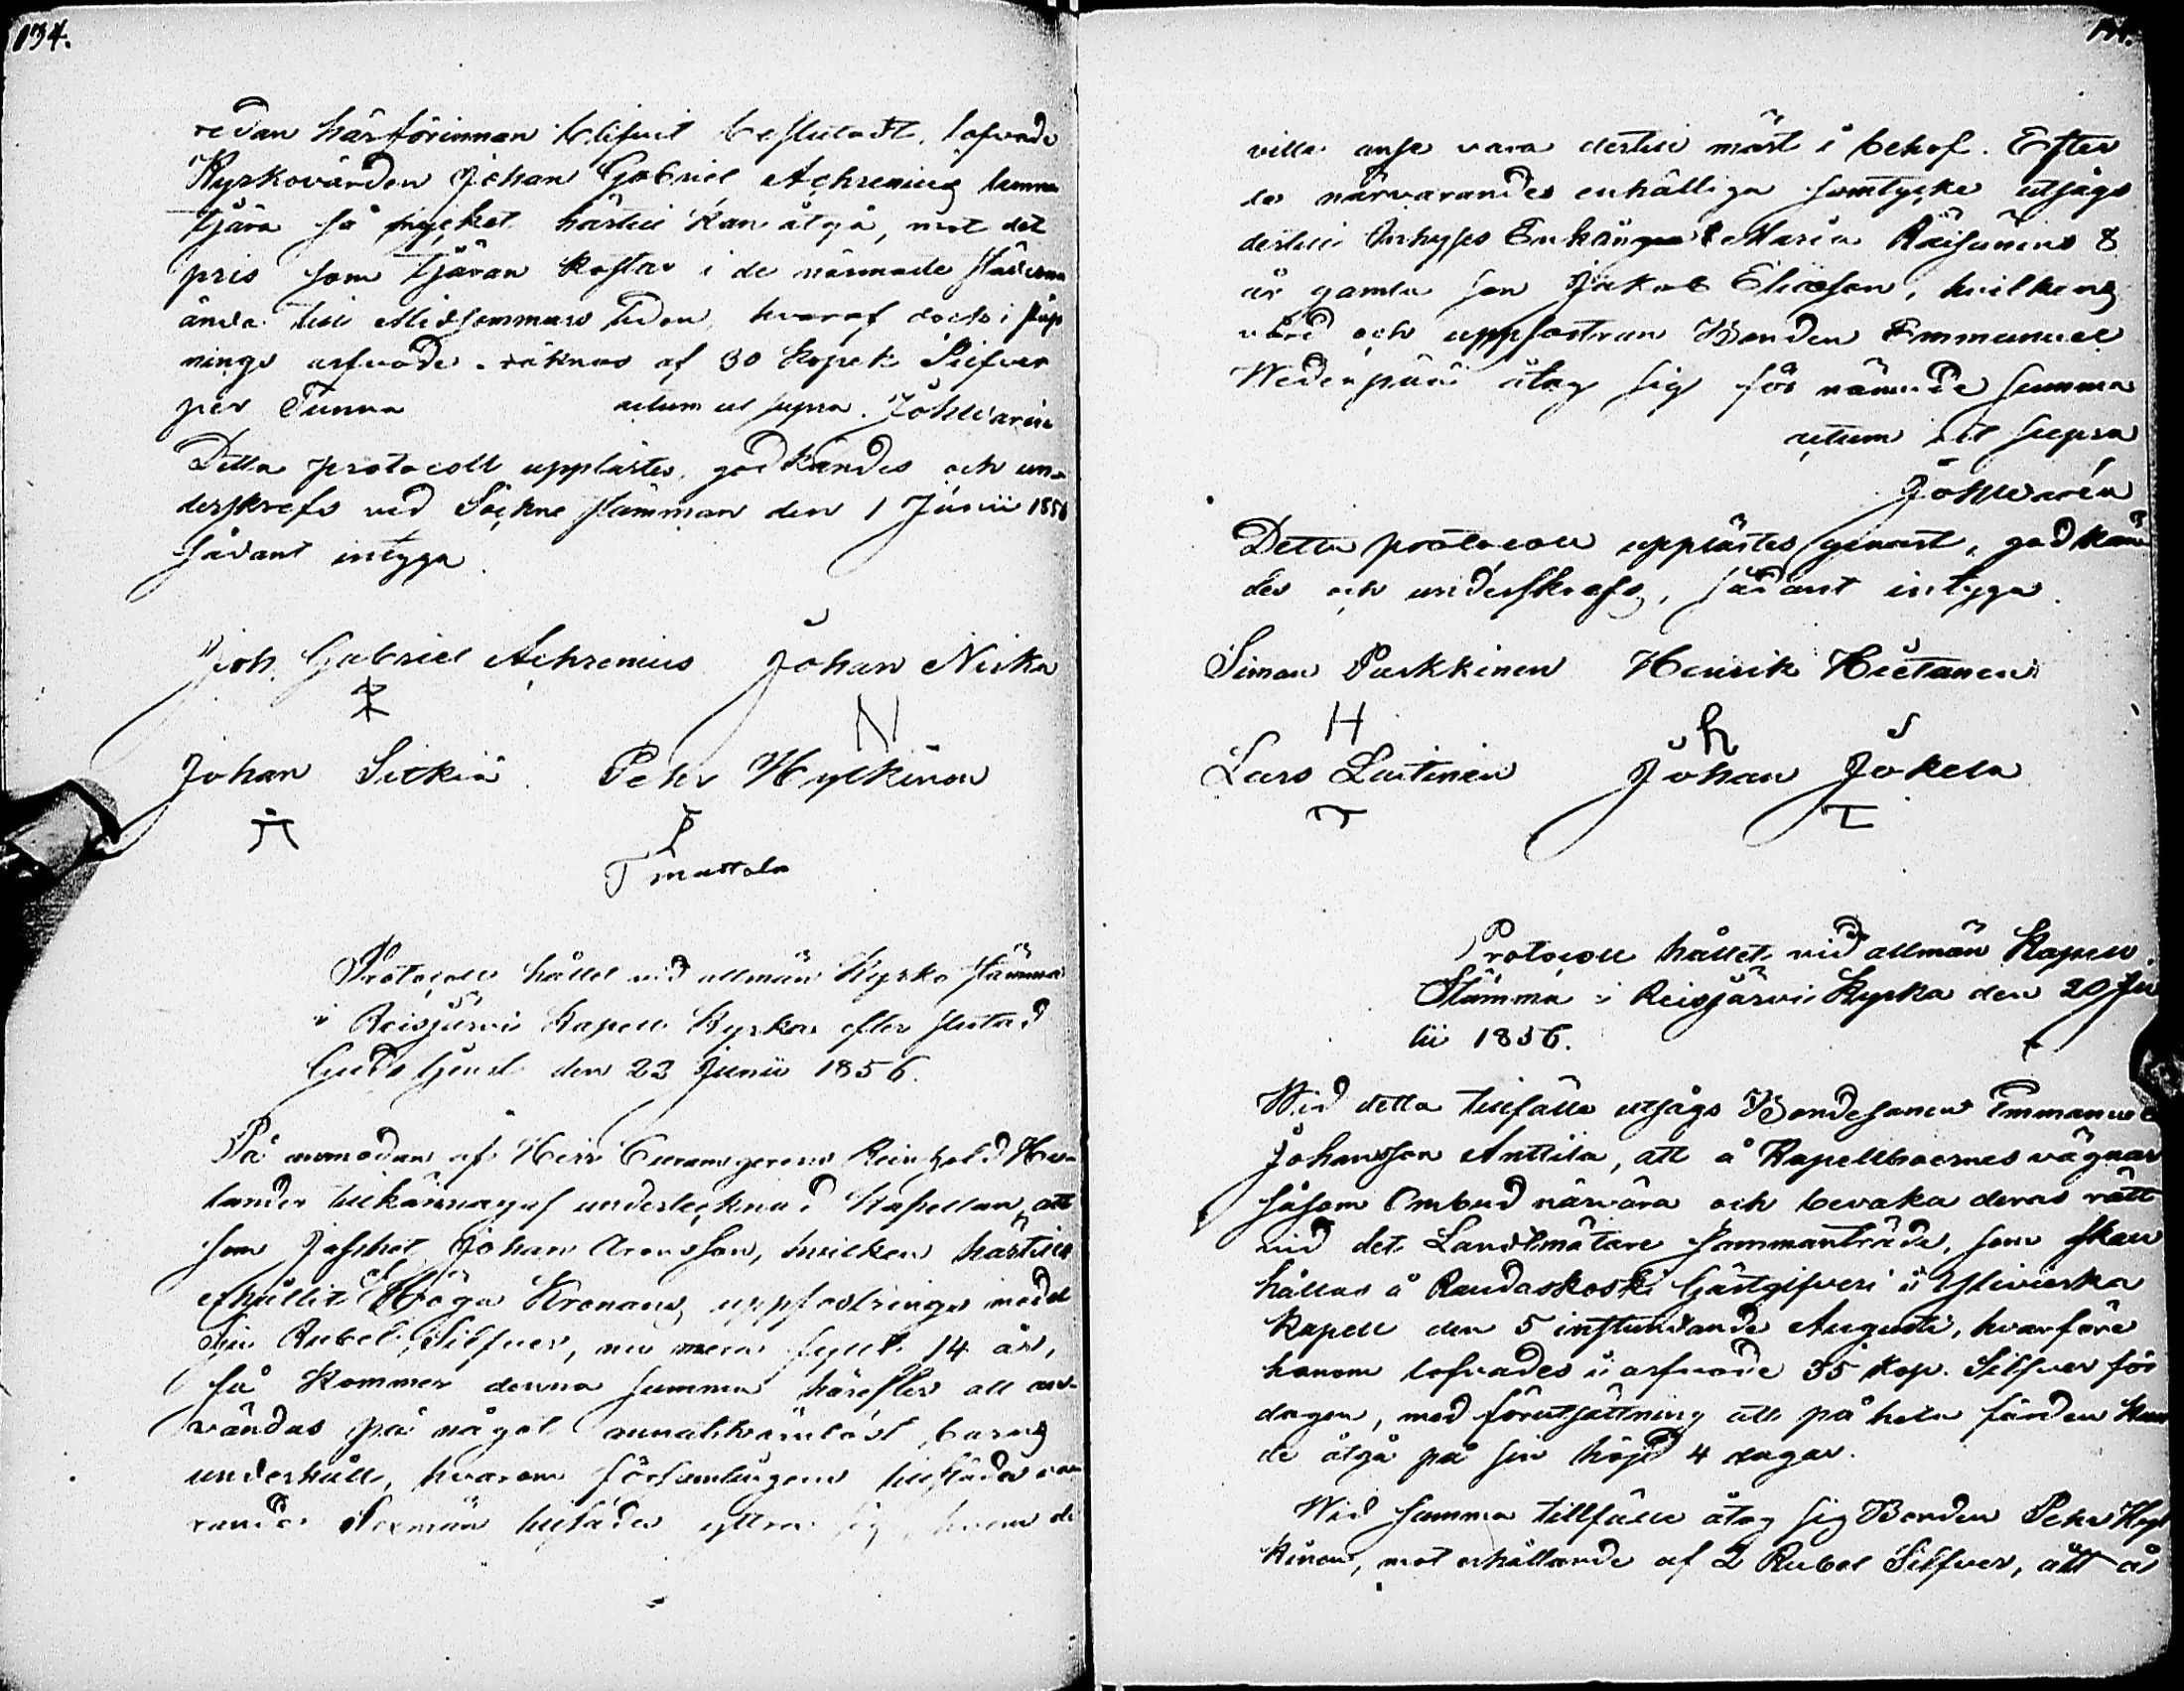 134.
redan härförinnan blifvit beslutadt, lofvade
Kyrkovärden Johan Gabriel Achrenius lemna
tjära så mycket härtill kan åtgå, mot det
pris som tjäran kostar i de närmade städerna
ända till Midsommars tiden, hvaraf dock i
nings arfvode räknas af 30 Kopek Silfver
per Tunna actum ut supra. Joh Warén
Detta protocoll upplästes, godkändes och un-
derskrefs vid Sockne stämman den 1 Junii 1856
sådant intyga.
Joh. Gabriel Achrenius Johan Niska
N
Johan Sitkiä. Peter Hylkinen
P
T mattola
Protocoll hållet vid allmän Kyrko stämma
i Reisjärvi Kapell Kyrka efter slutad
Gudstjenst den 22 Junii 1856.
På anmodan af Herr Curamgerens Reinhold He-
lander tillkännagaf undertecknad Kapellan, att
som Johan Aronsson, hvilken härtills
erhållit Höga Kronans uppfostrings medel
Rubel Silfver, nu mera fyllt 14 år,
så kommer denna summa härefter att an-
vändas på något annat värnlöst barns
underhåll, hvarom församlingens tillstädes va-
rande Sexmän yttra sig, hvem de
ville anse vara dertill mäst i behof. Efter
de närvarandes enhälliga samtycke utsågs
dertill Inhyses Enkan Maria Räisänens 8
år gamla son Jakob Eliasson, hvilkens
vård och uppfostran Bonden Emmanuel
Wedenpää åtog sig för nämnde summa
actum ut supra
Joh Warén
Detta protocoll upplästes genast, godkän-
des och underskrefs, sådant intyga.
Simon Parkkinen Henrik Hietanen
H h
Lars Laitinen Johan Jokela
Protocoll hållet vid allmän Kapell
Stämma i Reisjärvi Kyrka den 20 Ju
lii 1856.
Wid detta tillfälle utsågs Bondesonen Emmanuel
Johansson Anttila, att å Kapellboernes vägnar
såsom Ombud närvara och bevaka deras rätt
vid det Landtmätare sammanträde, som skall
hållas å Raudaskoski Gästgifveri i Ylivieska
Kapell den 5 instundande Augusti, hvarföre
honom lofvades i arfvode 35 Kop. Silfver för
dagen, med förutsättning att på hela färden kun
de åtgå på sin höjd 4 dagar.
Wid samma tillfälle åtog sig Bonden Pehr Hyl
kinen, mot erhållande af 2 Rubel Silfver, att å